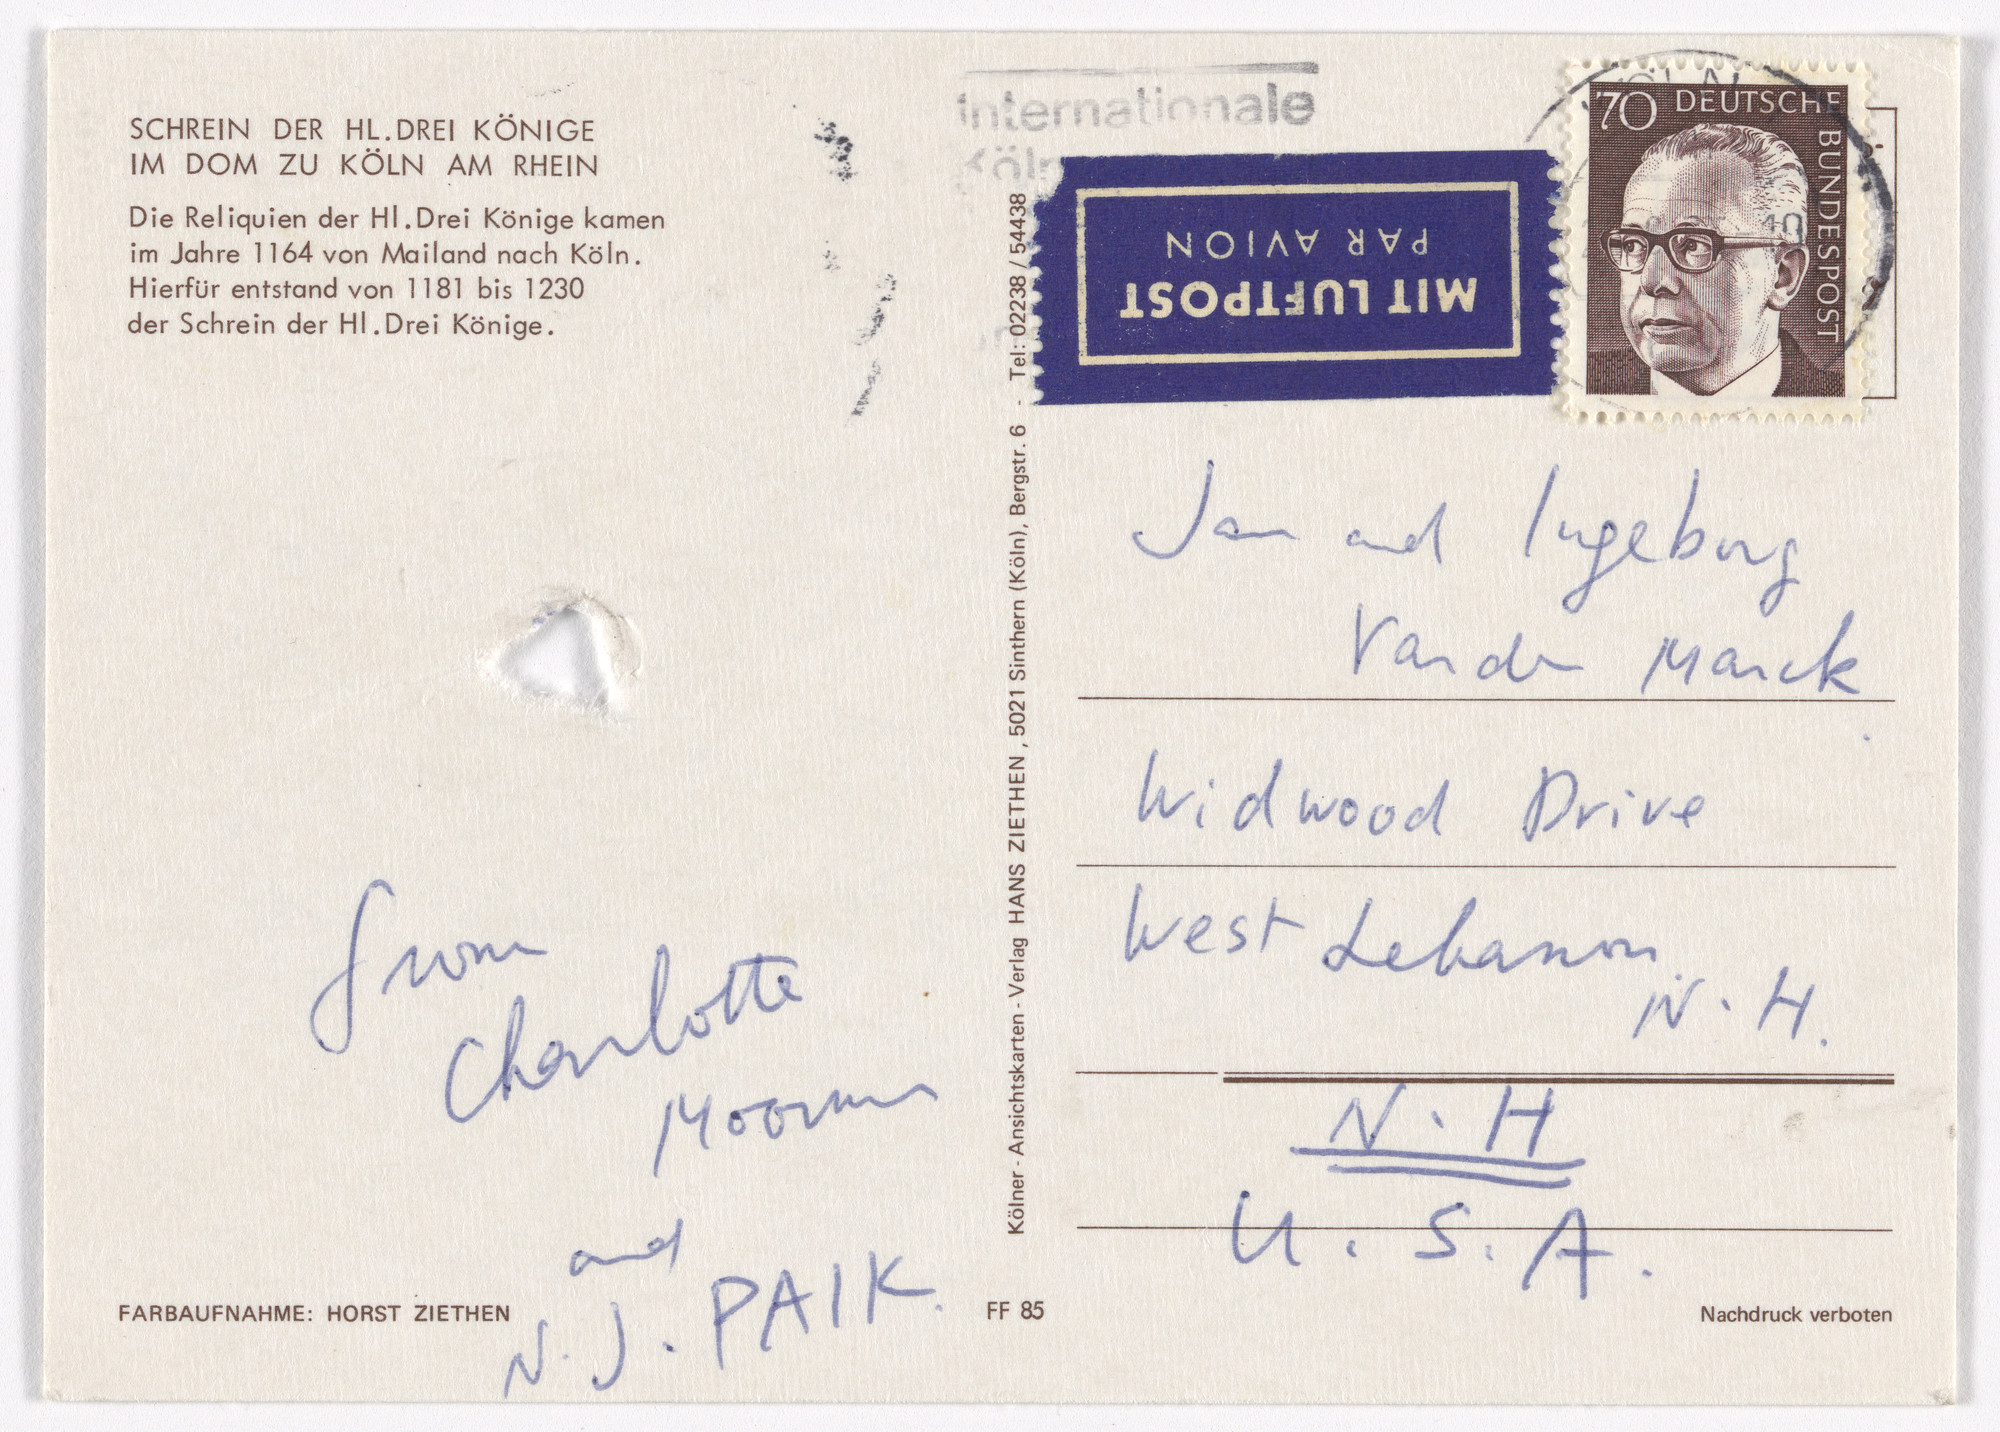 SCHREIN DER HL.DREI KÖNIGE
IM DOM ZU KÖLN AM RHEIN
Die Reliquien der Hl.Drei Könige kamen
im Jahre 1164 von Mailand nach Köln.
Hierfür entstand von 1181 bis 1230
der Schrein der Hl.Drei Könige.
from
Charlotte
Moorman
and
N.J. PAIK.
FARBAUFNAHME: HORST ZIETHEN
FF 85
Kölner - Ansichtskarten - Verlag HANS ZIETHEN, 5021 Sinthern (Köln), Bergstr. 6 - Tel: 02238 / 54438
internationale
Köln
MIT LUFTPOST
PAR AVION
70 DEUTSCHE
BUNDESPOST
Jan and Ingeborg
Van der Marck
Widwood Drive
West Lebanon.
N.H.
N.H
U.S.A.
Nachdruck verboten